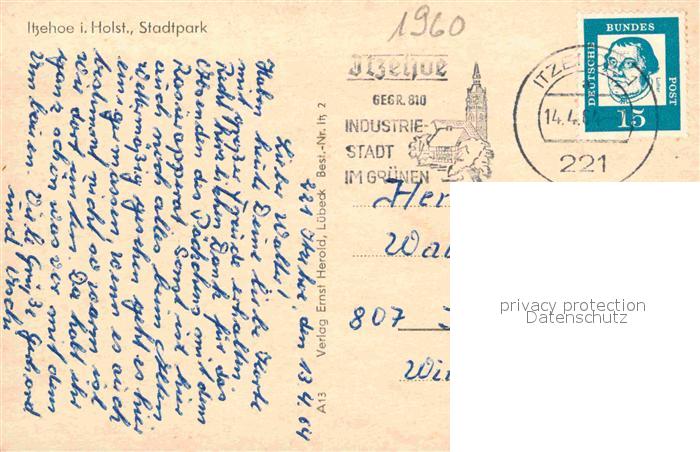 Itzehoe i. Holst., Stadtpark
1960
Itzehoe
GEGR. 810
INDUSTRIE-
STADT
IM GRÜNEN
ITZEHOE
14.4.64
221
DEUTSCHE
BUNDES
POST
Luther
15
221 Itzehoe, den 13.4.64
Lieber Walter!
Habe heute Deine liebe Karte
mit großer Freude erhalten.
Recht herzlichen Dank für das
Absenden des Päckchens mit dem
Rasierapparat. Sonst ist hier
auch noch alles beim Alten.
Wettermäßig gesehen geht es hier
einigermaßen, wenn es auch
bestimmt nicht so warm ist
wie dort unten. Da habt ihr
ganz schön was vor mit dem
Umbauen. Viele Grüße Gerhard
und Uschi
A13 Verlag Ernst Herold, Lübeck Best.-Nr. Ith 2
Her
Wa
807
Wi
privacy protection
Datenschutz